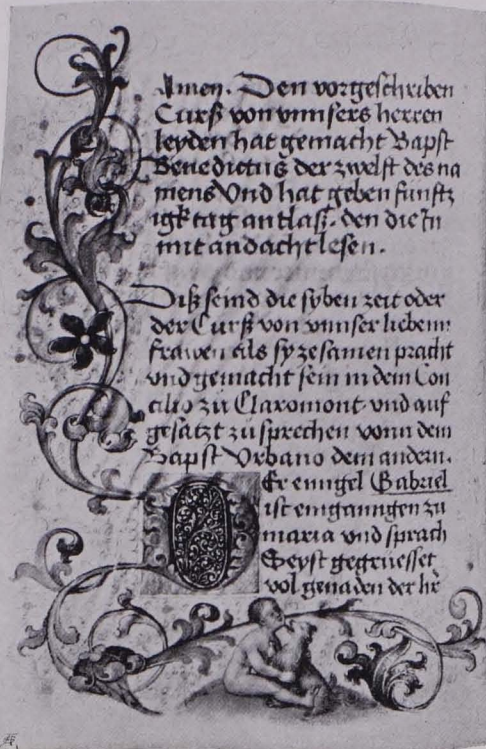 Amen. Den vorgeschriben
Curß von vnnsers herren
leyden hat gemacht Bapst
Benedictus der zwelft des na
mens Vnd hat geben funftz
igk tag antlaß. den die In
mit andacht lesen.
Diß seind die syben zeit oder
der Curß von vnnser lieben
frawen als sy zesamen pracht
vnd gemacht sein in dem Con
cilio zu Claromont vnd auf
gesatzt zu sprechen vonn dem
Bapst Vrbano dem andern.
Der enngel Gabriel
ist eingannngen zu
maria vnd sprach
Seyst gegruesset
vol genaden der hr